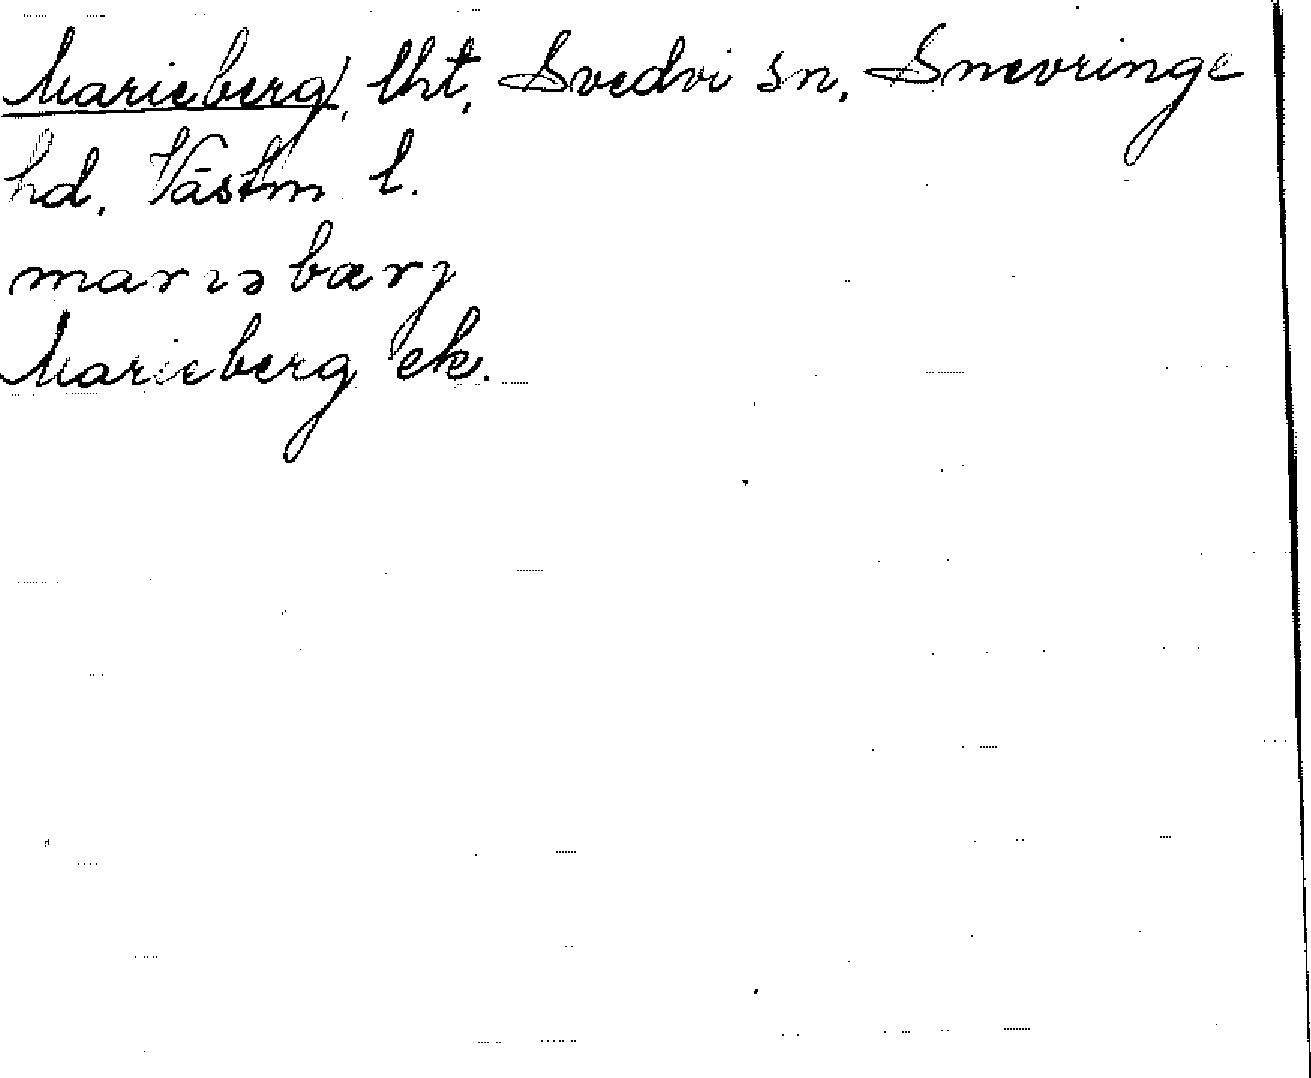 Marieberg, lht, Svedvi sn, Snevringe
hd, Västm l.
marıəbærj
Marieberg ek.